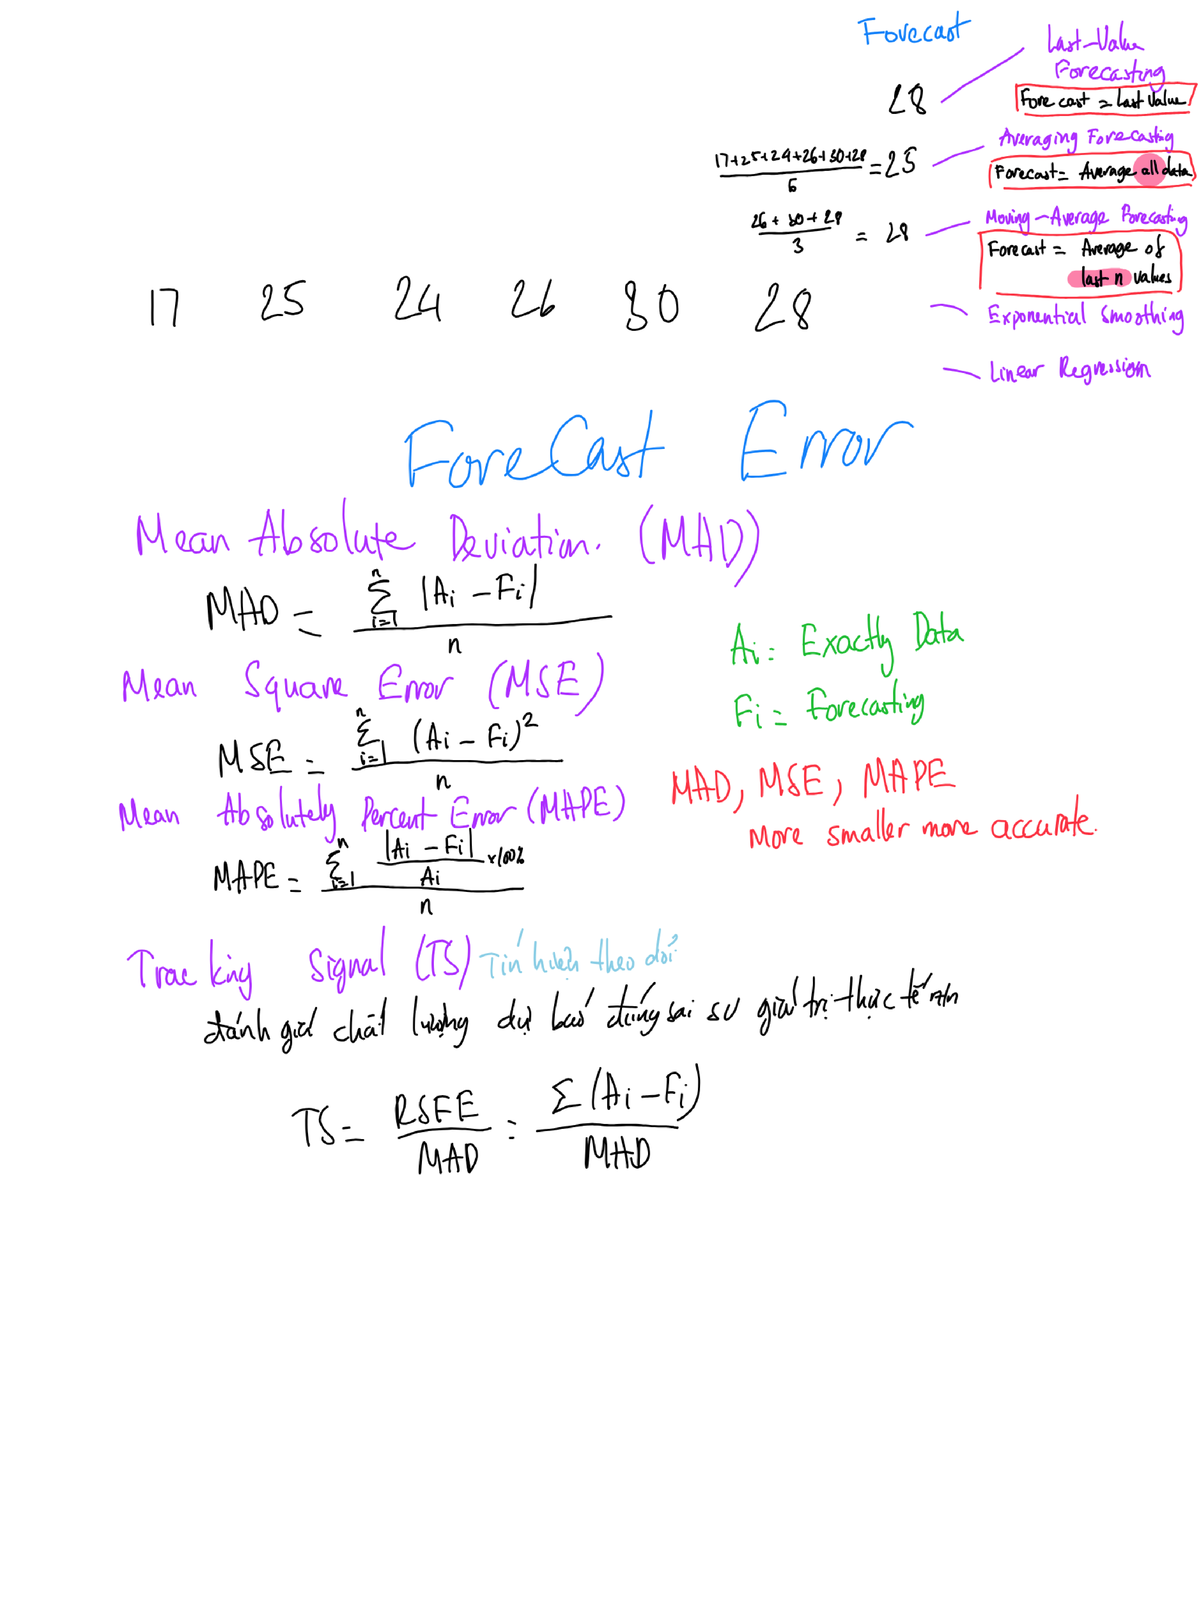 Forecast
Last-Value
Forecasting
28
Forecast = Last Value
Averaging Forecasting
17+25+24+26+30+28
6
=25
Forecast = Average all data
Moving-Average Forecasting
26 + 30 + 28
3
= 28
Forecast = Average of
last n values
17 25 24 26 30 28
Exponential Smoothing
Linear Regression
ForeCast Error
Mean Absolute Deviation. (MAD)
MAD = n Σ i=1 |Ai - Fi|
n
Ai = Exactly Data
Mean Square Error (MSE)
Fi = Forecasting
MSE = n Σ i=1 (Ai - Fi)²
n
MAD, MSE, MAPE
Mean Absolutely Percent Error (MAPE)
More smaller more accurate.
MAPE = n Σ i=1 |Ai - Fi| ×100%
Ai
n
Tracking Signal (TS) Tín hiệu theo dõi
đánh giá chất lượng dự báo đúng sai so giá trị thực tế
TS = RSFE = Σ(Ai - Fi)
MAD MAD